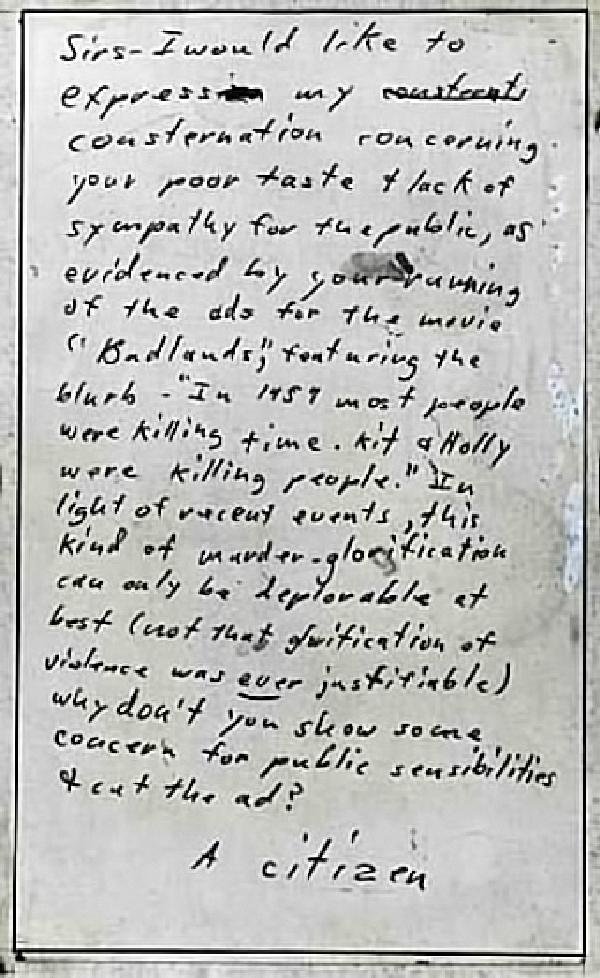 Sirs- I would like to
express my
consternation concerning
your poor taste & lack of
sympathy for the public, as
evidenced by your running
of the ads for the movie
"Badlands," featuring the
blurb - "In 1959 most people
were killing time. Kit & Holly
were killing people." In
light of recent events, this
kind of murder-glorification
can only be deplorable at
best (not that glorification of
violence was ever justifiable)
why don't you show some
concern for public sensibilities
& cut the ad?
A citizen